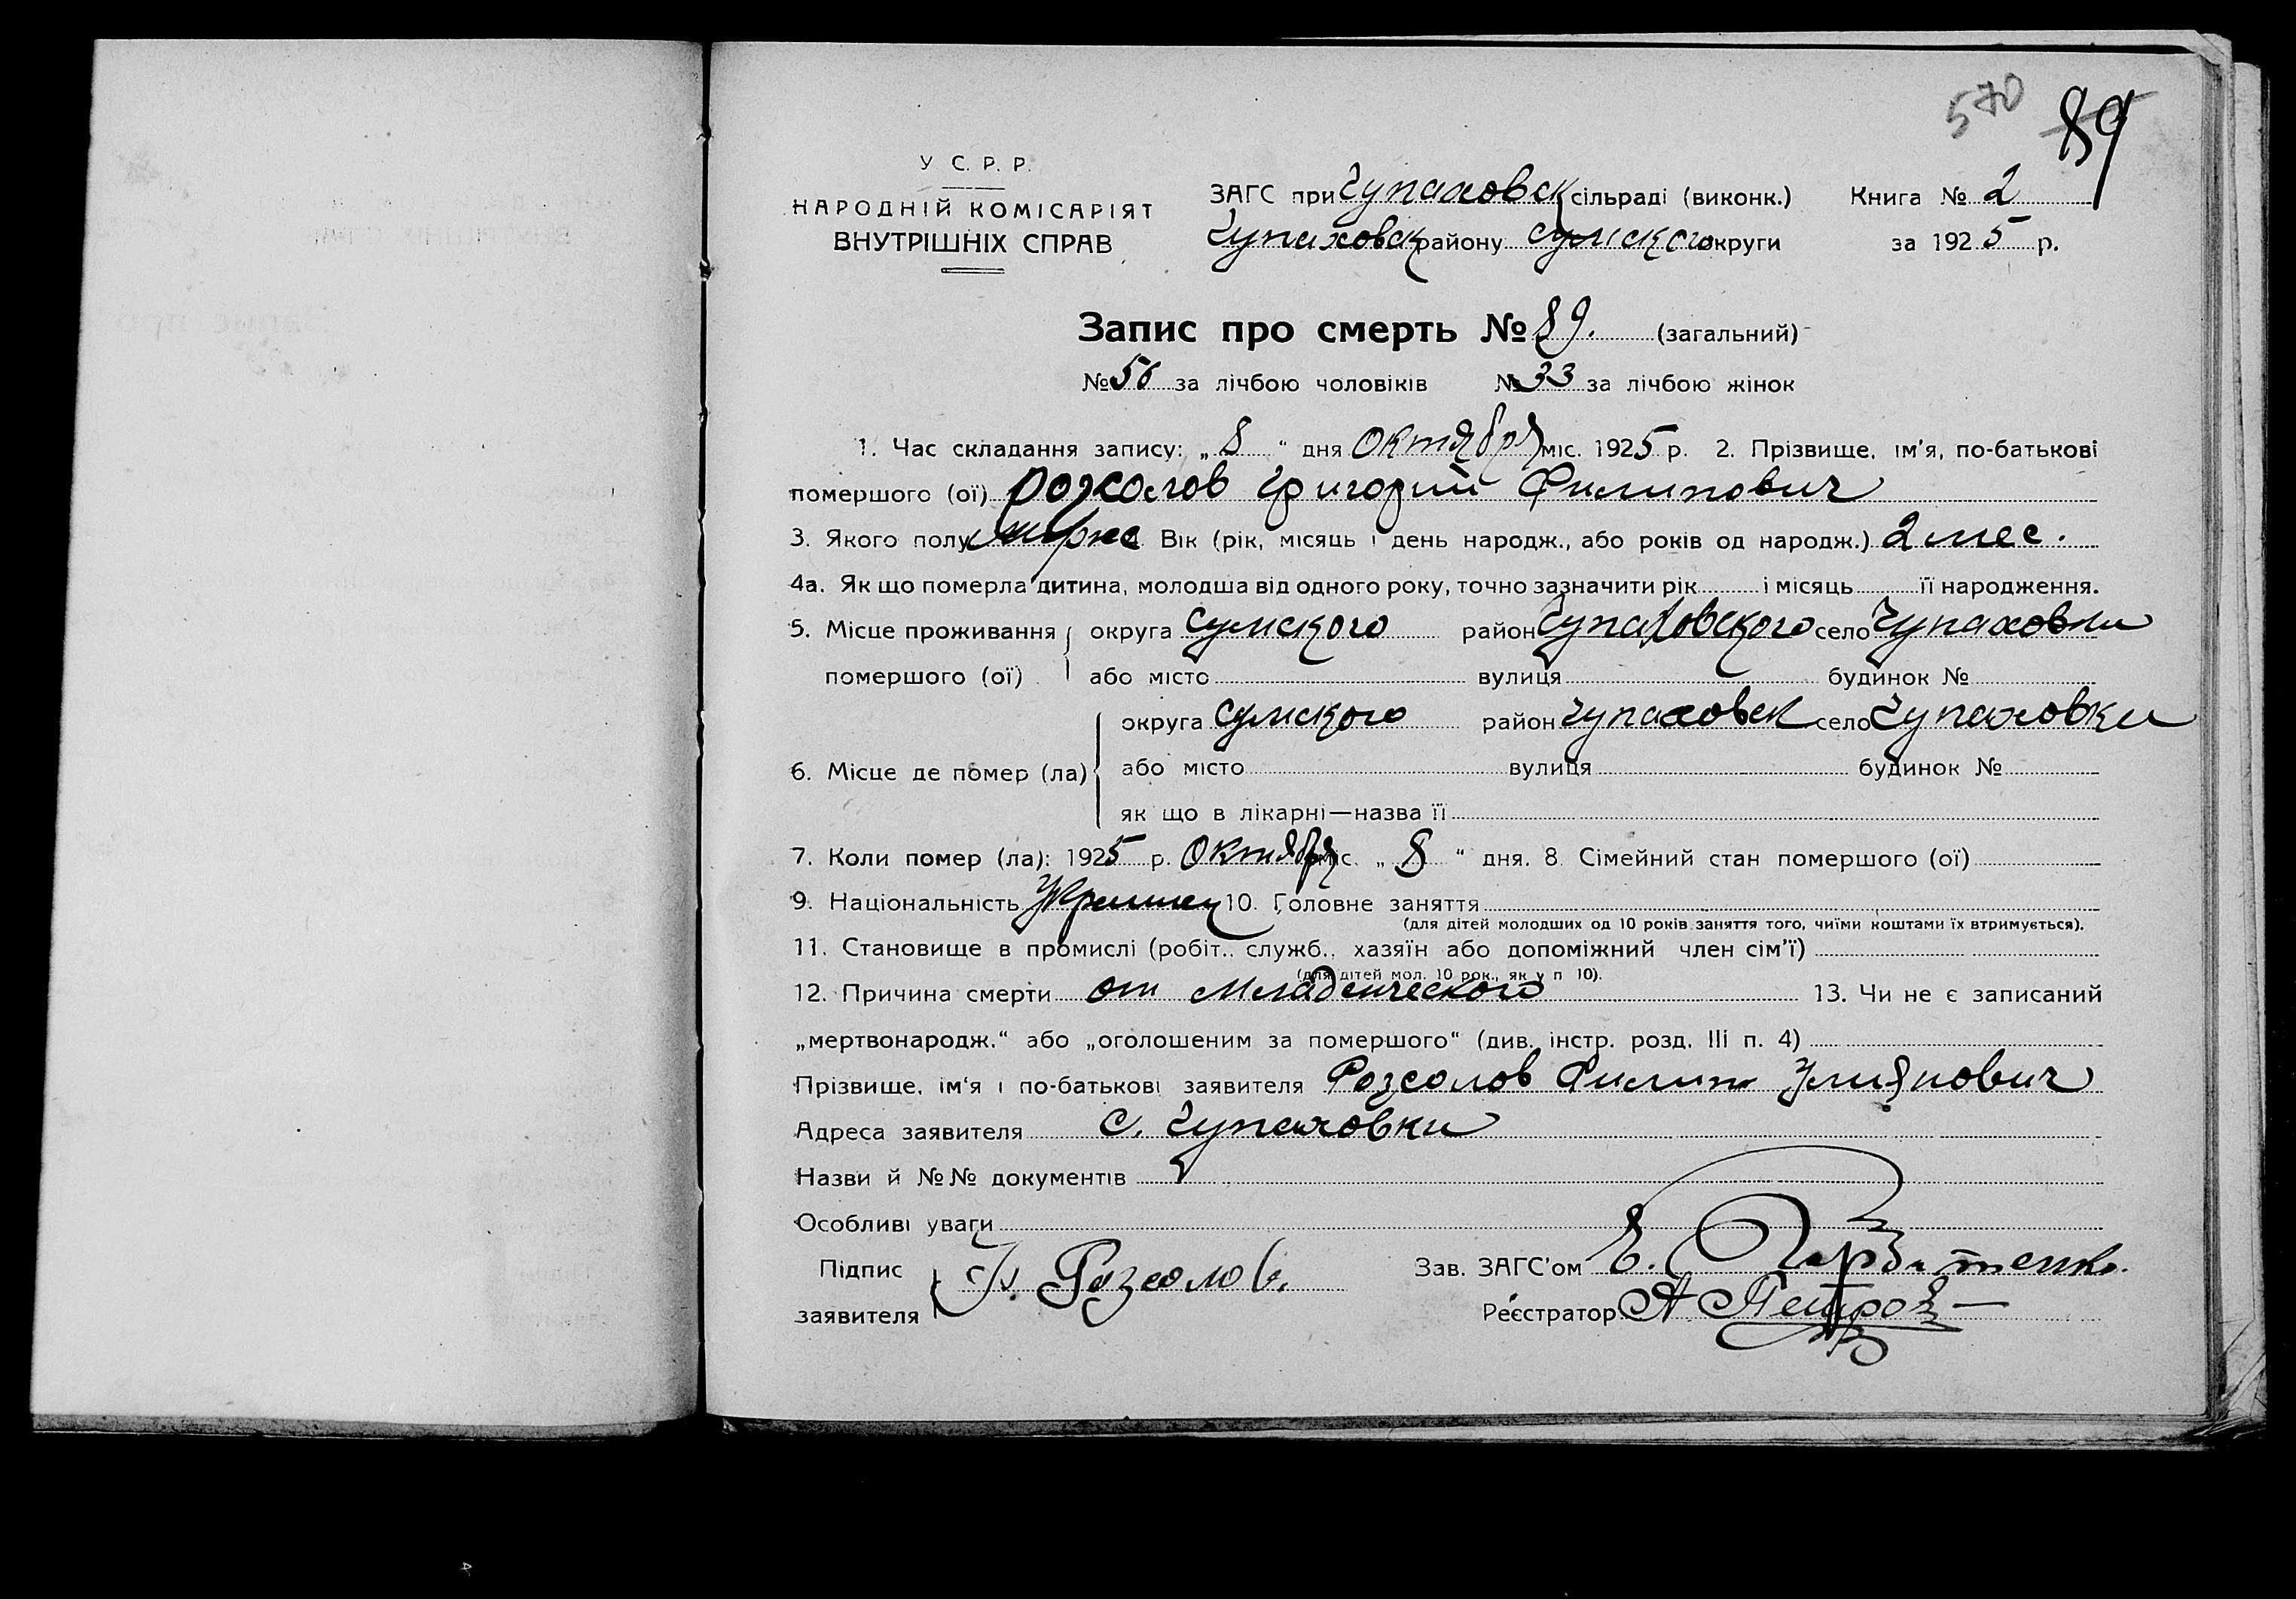 570 89
У С. Р. Р.
НАРОДНІЙ КОМІСАРІЯТ
ВНУТРІШНІХ СПРАВ
ЗАГС при Чупаховск сільраді (виконк.) Книга № 2
Чупаховск району Сумского округи за 1925 р.
Запис про смерть № 89. (загальний)
№ 56 за лічбою чоловіків № 33 за лічбою жінок
1. Час складання запису: „ 8 “ дня Октября міс. 1925 р. 2. Прізвище, ім'я, по-батькові
помершого (ої) Розсолов Григорий Филипович
3. Якого полу Вік (рік, місяць і день народж., або років од народж.) 2 мес.
4а. Як що померла дитина, молодша від одного року, точно зазначити рік і місяць її народження.
5. Місце проживання округа Сумского район Чупаховского село Чупаховки
помершого (ої) або місто вулиця будинок №
округа Сумского район Чупаховск село Чупаховки
6. Місце де помер (ла) або місто вулиця будинок №
як що в лікарні—назва її
7. Коли помер (ла): 1925 р. Октября міс. „ 8 “ дня. 8. Сімейний стан помершого (ої)
9. Національність 10. Головне заняття
(для дітей молодших од 10 років заняття того, чиїми коштами їх втримується).
11. Становище в промислі (робіт., служб., хазяїн або допоміжний член сім'ї)
(для дітей мол. 10 рок., як у п 10).
12. Причина смерти от Младенческого 13. Чи не є записаний
„мертвонародж.“ або „оголошеним за помершого“ (див. інстр. розд. III п. 4)
Прізвище, ім'я і по-батькові заявителя Розсолов Филип
Адреса заявителя С. Чупаховки
Назви й №№ документів
Особливі уваги
Підпис Розсолов. Зав. ЗАГС'ом Е.
заявителя Реєстратор А Петров